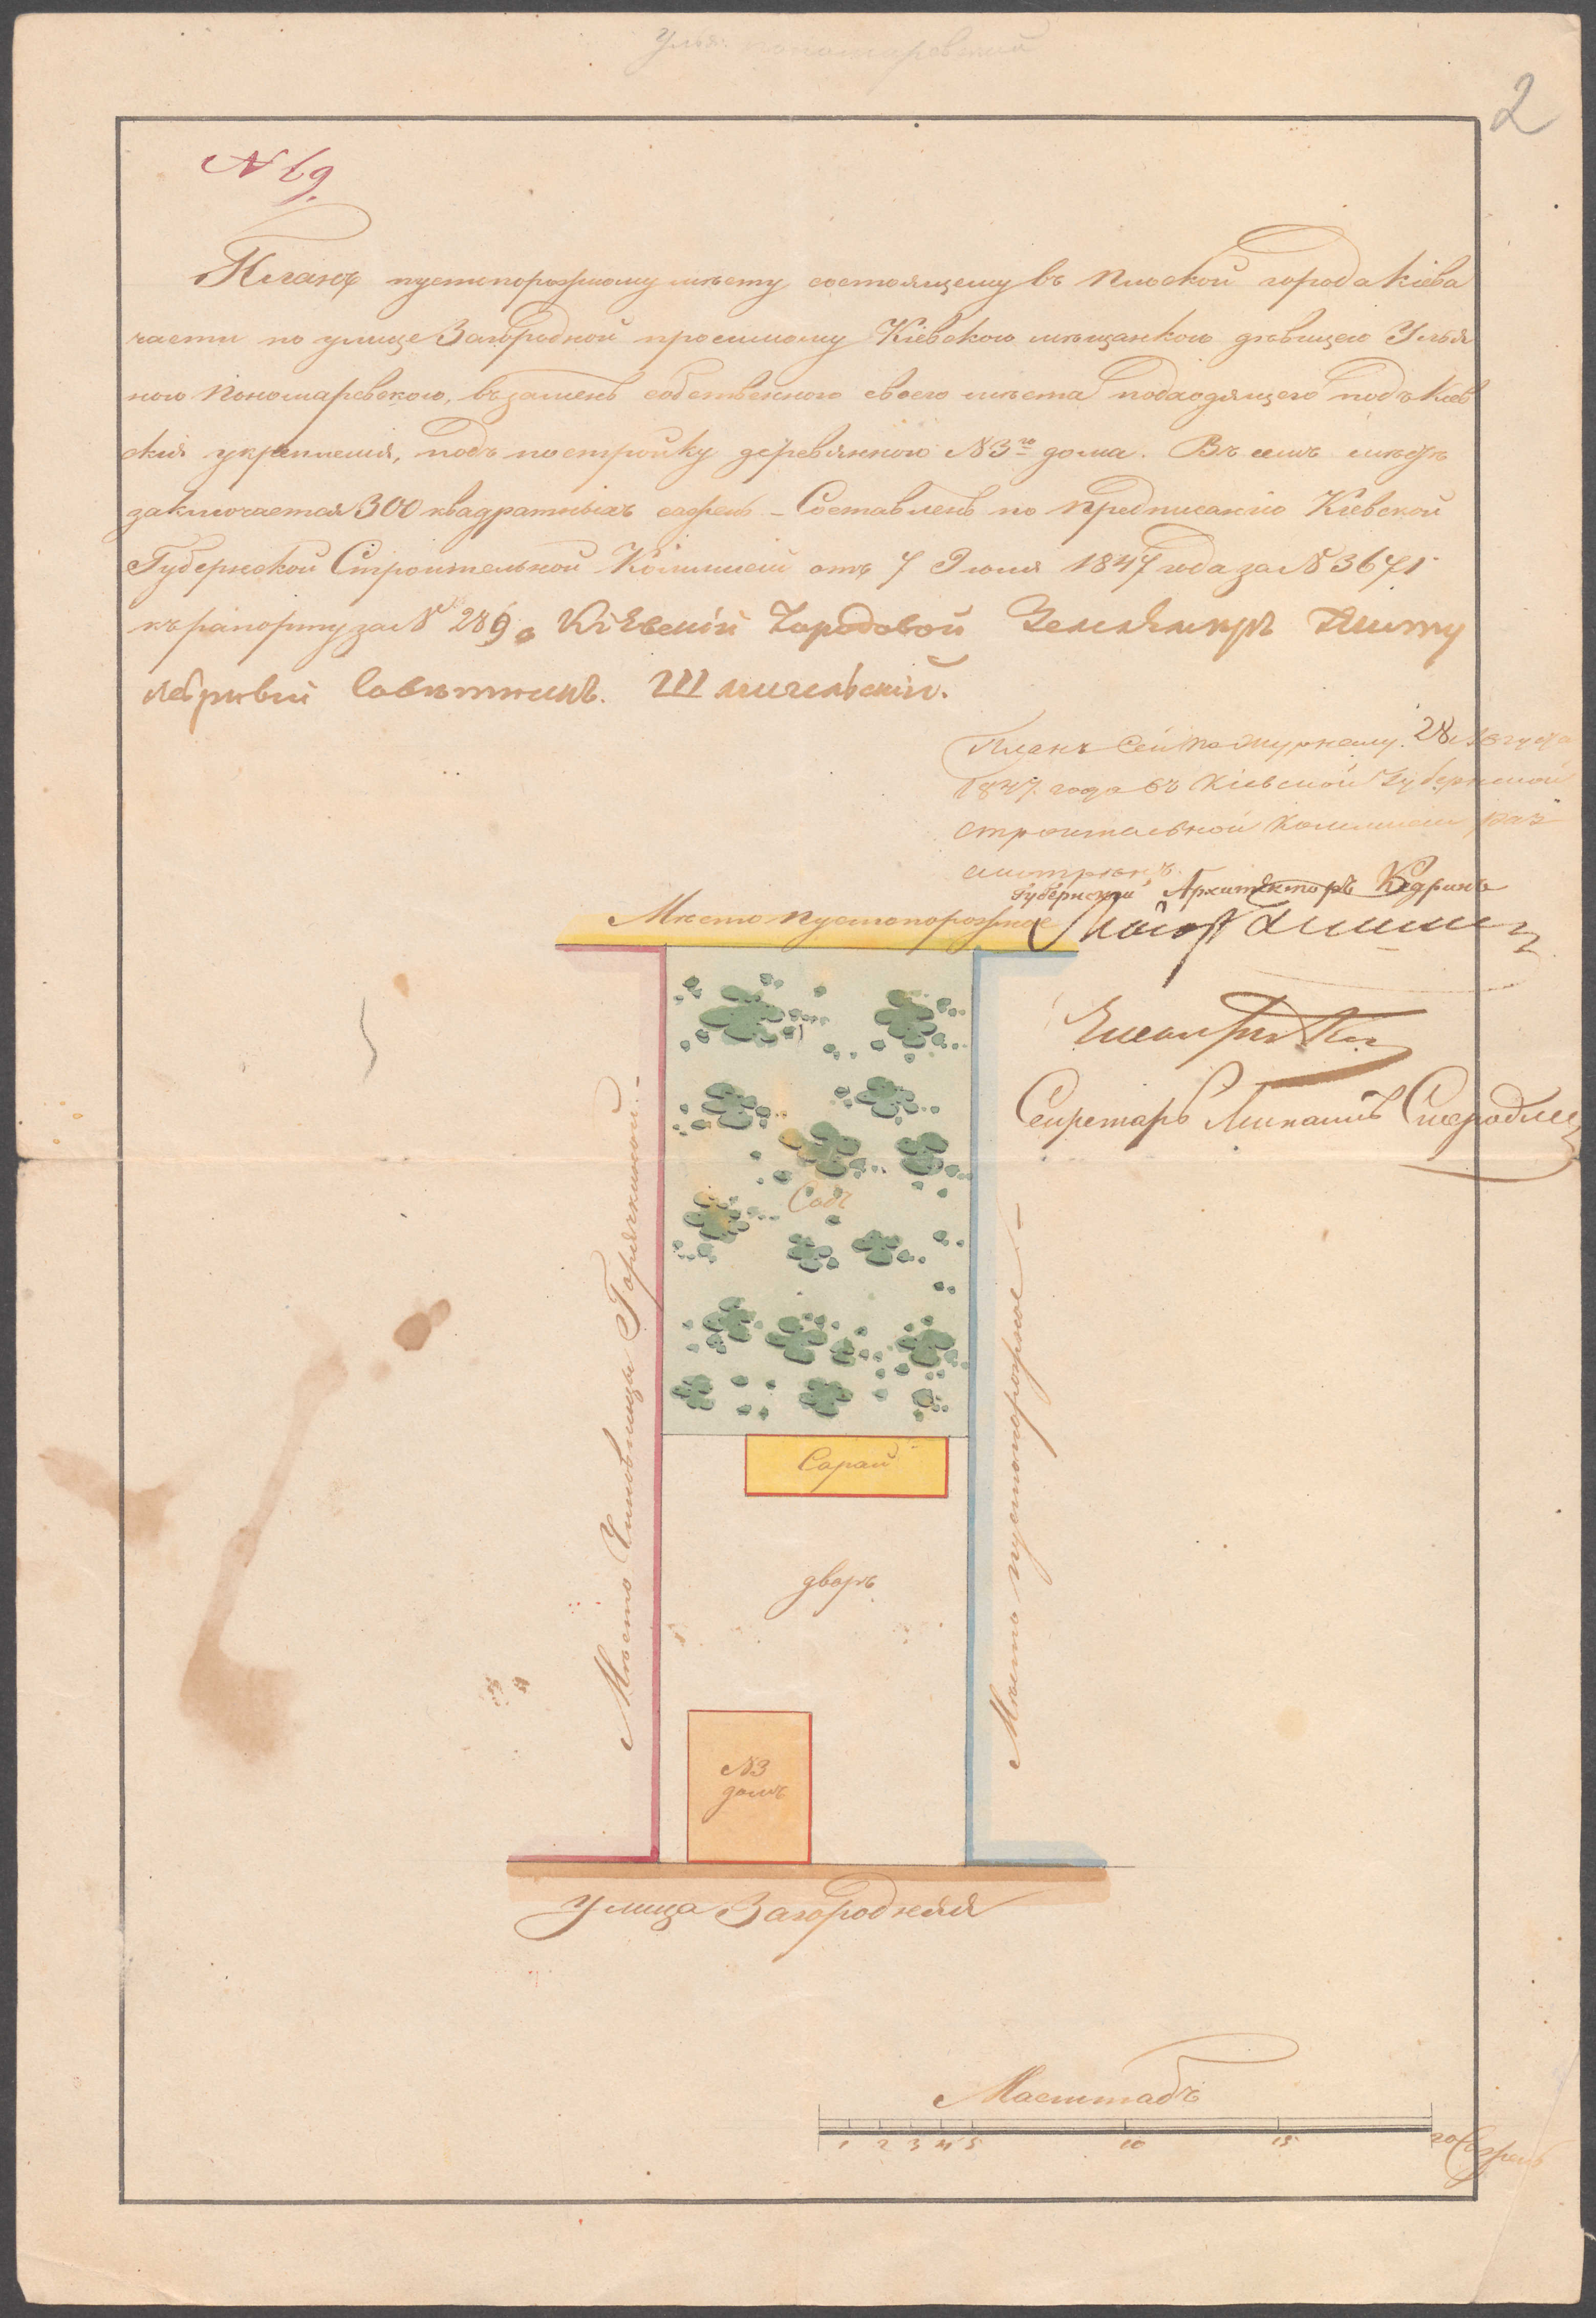 2
N 69.
Планъ пустопорожному мѣсту состоящему въ Плоской города Кіева
части по улице Загородной просимому Кіевскою мѣщанкою дѣвицею Улья
ною Пономаревскою, възаменъ собственного своего мѣста подходящего подъ Кіев
скія укрепленія, подъ постройку деревянного N3го дома. Въ семъ мѣстѣ
заключается 300 квадратныхъ сажень – Составленъ по предписанію Кіевской
Губернской Строительной Комиссіи отъ 7 Июля 1847 года за N 3671
къ рапорту за N 289. Кіевскій Городовой Землемѣръ Титу
лярный Совѣтникъ.
Планъ сей по журналу 28 Августа
1847 года въ Кіевской Губернской
строительной Комиссіи раз
смотрѣнъ.
Губернскій Архитекторъ
Секретарь
Мѣсто пустопорожное
Мѣсто Чиновницы Горячкиной –
Садъ
Сарай
дворъ
Мѣсто пустопорожное –
N3
домъ
Улица Загородняя
Масштабъ
1 2 3 4 5 10 15 20 Сажень